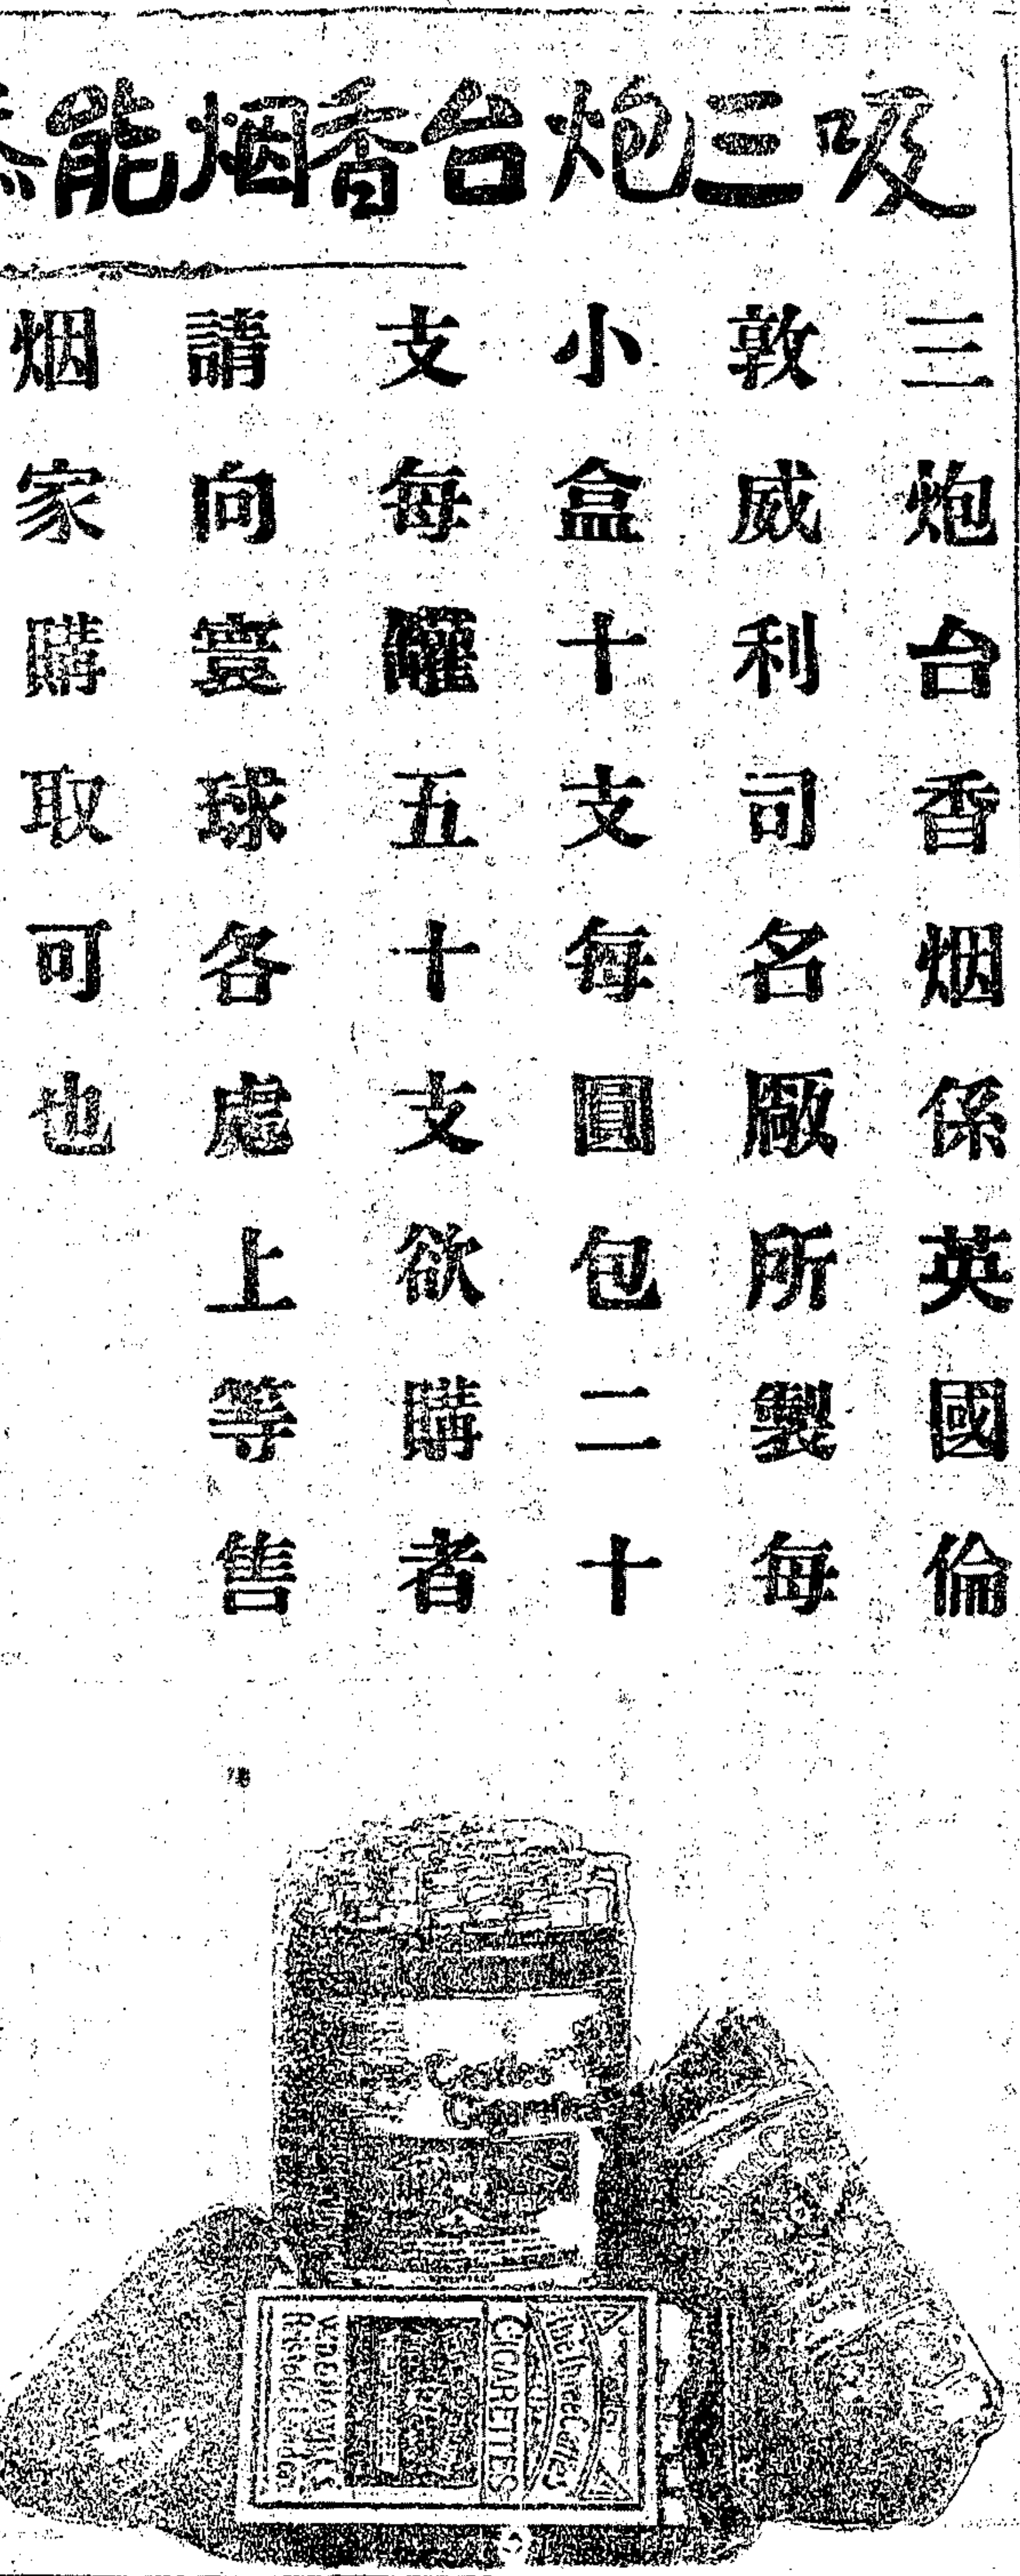 吸三炮台香烟能
三炮台香烟係英國倫
敦威利司名厰所製每
小盒十支每圓包二十
支每罐五十支欲購者
請向寰球各處上等售
烟家購取可也
Castles
Cigarettes
The Three Castles
CIGARETTES
W.D. & H.O. WILLS
Bristol & London